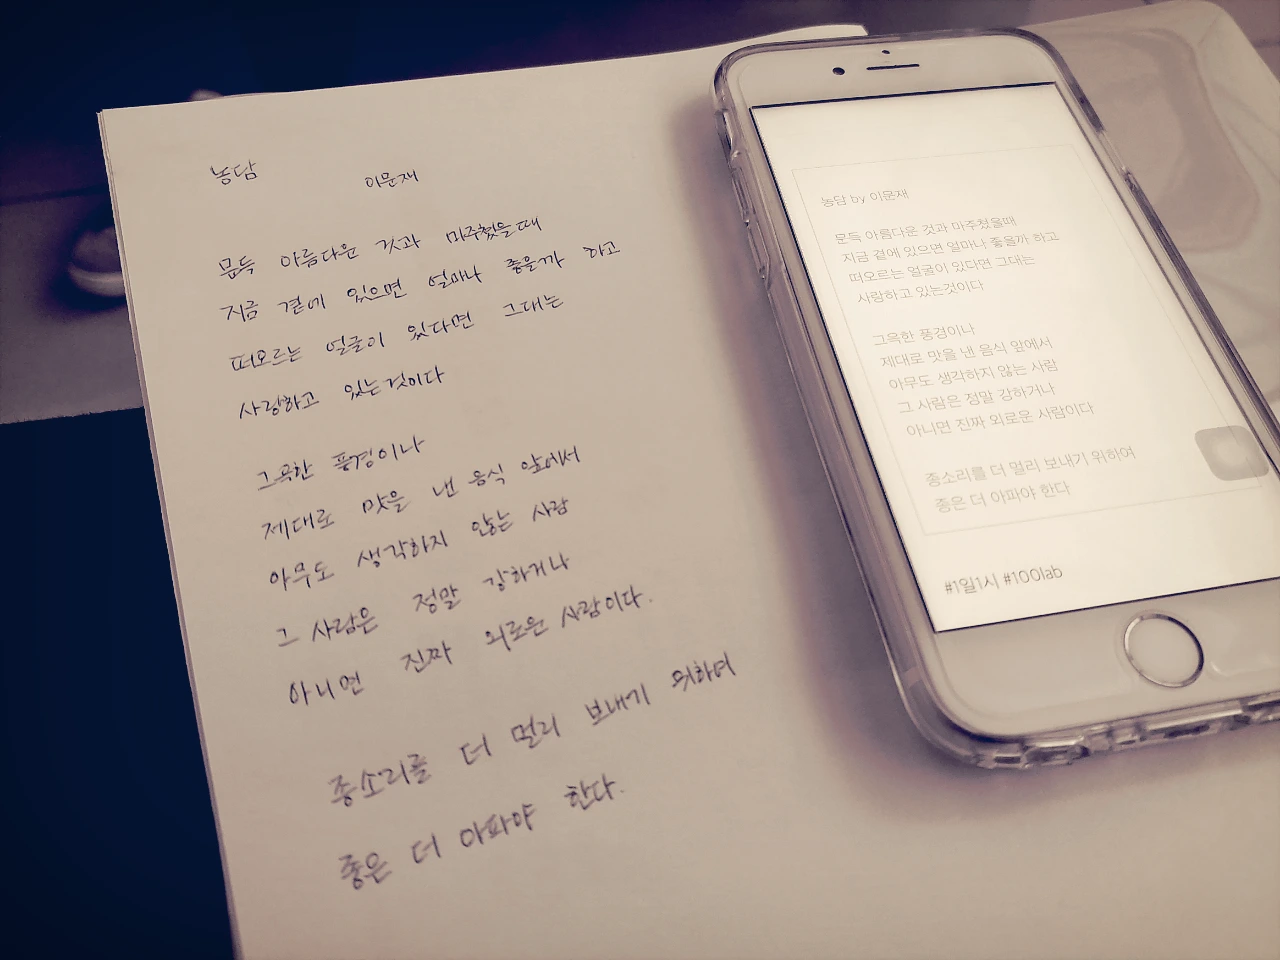 농담
이문재
문득 아름다운 것과 마주쳤을때
지금 곁에 있으면 얼마나 좋을까 하고
떠오르는 얼굴이 있다면 그대는
사랑하고 있는것이다
그윽한 풍경이나
제대로 맛을 낸 음식 앞에서
아무도 생각하지 않는 사람
그 사람은 정말 강하거나
아니면 진짜 외로운 사람이다.
종소리를 더 멀리 보내기 위하여
종은 더 아파야 한다.
농담 by 이문재
문득 아름다운 것과 마주쳤을때
지금 곁에 있으면 얼마나 좋을까 하고
떠오르는 얼굴이 있다면 그대는
사랑하고 있는것이다
그윽한 풍경이나
제대로 맛을 낸 음식 앞에서
아무도 생각하지 않는 사람
그 사람은 정말 강하거나
아니면 진짜 외로운 사람이다
종소리를 더 멀리 보내기 위하여
종은 더 아파야 한다
#1일1시 #100lab